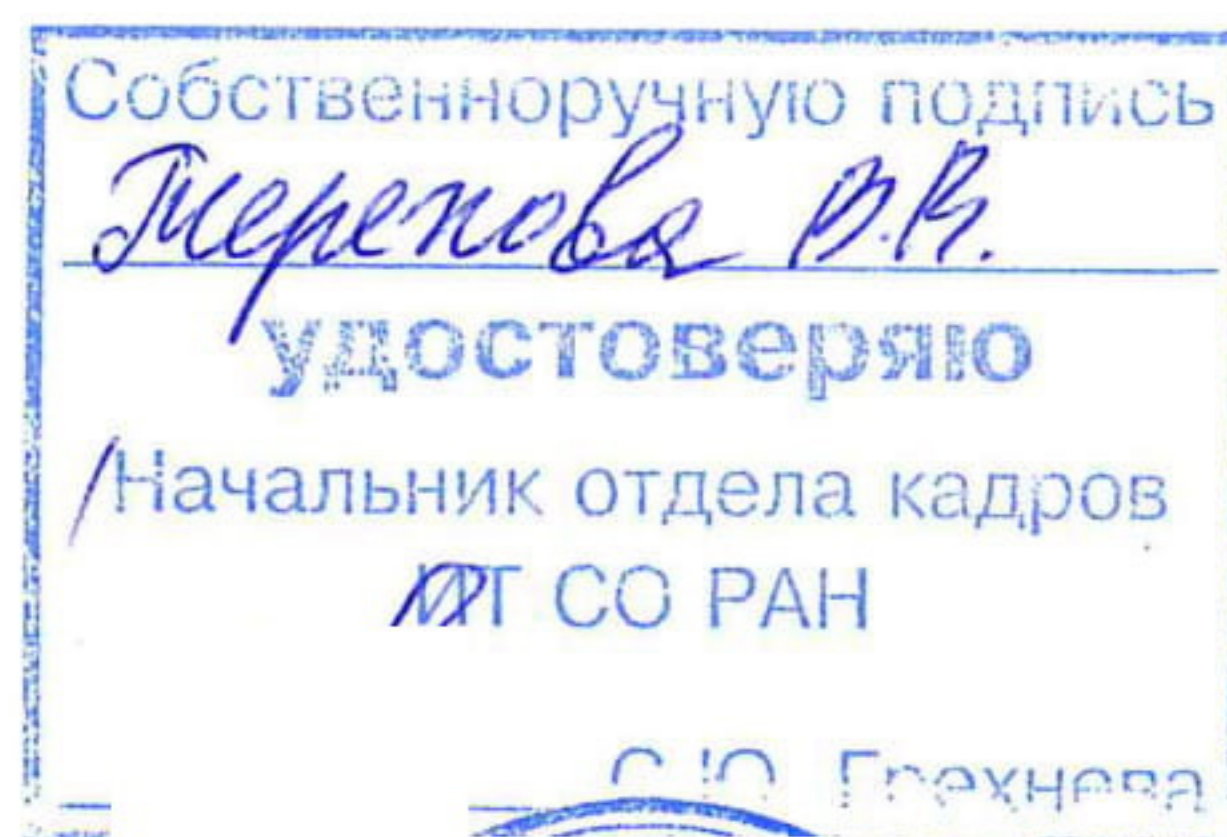 Собственноручную подпись
Терехова В.В.
удостоверяю
Начальник отдела кадров
ИТ СО РАН
С.Ю. Грехнева